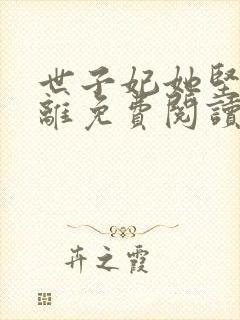 世子妃她堅
離免費閱讀
卉之霞